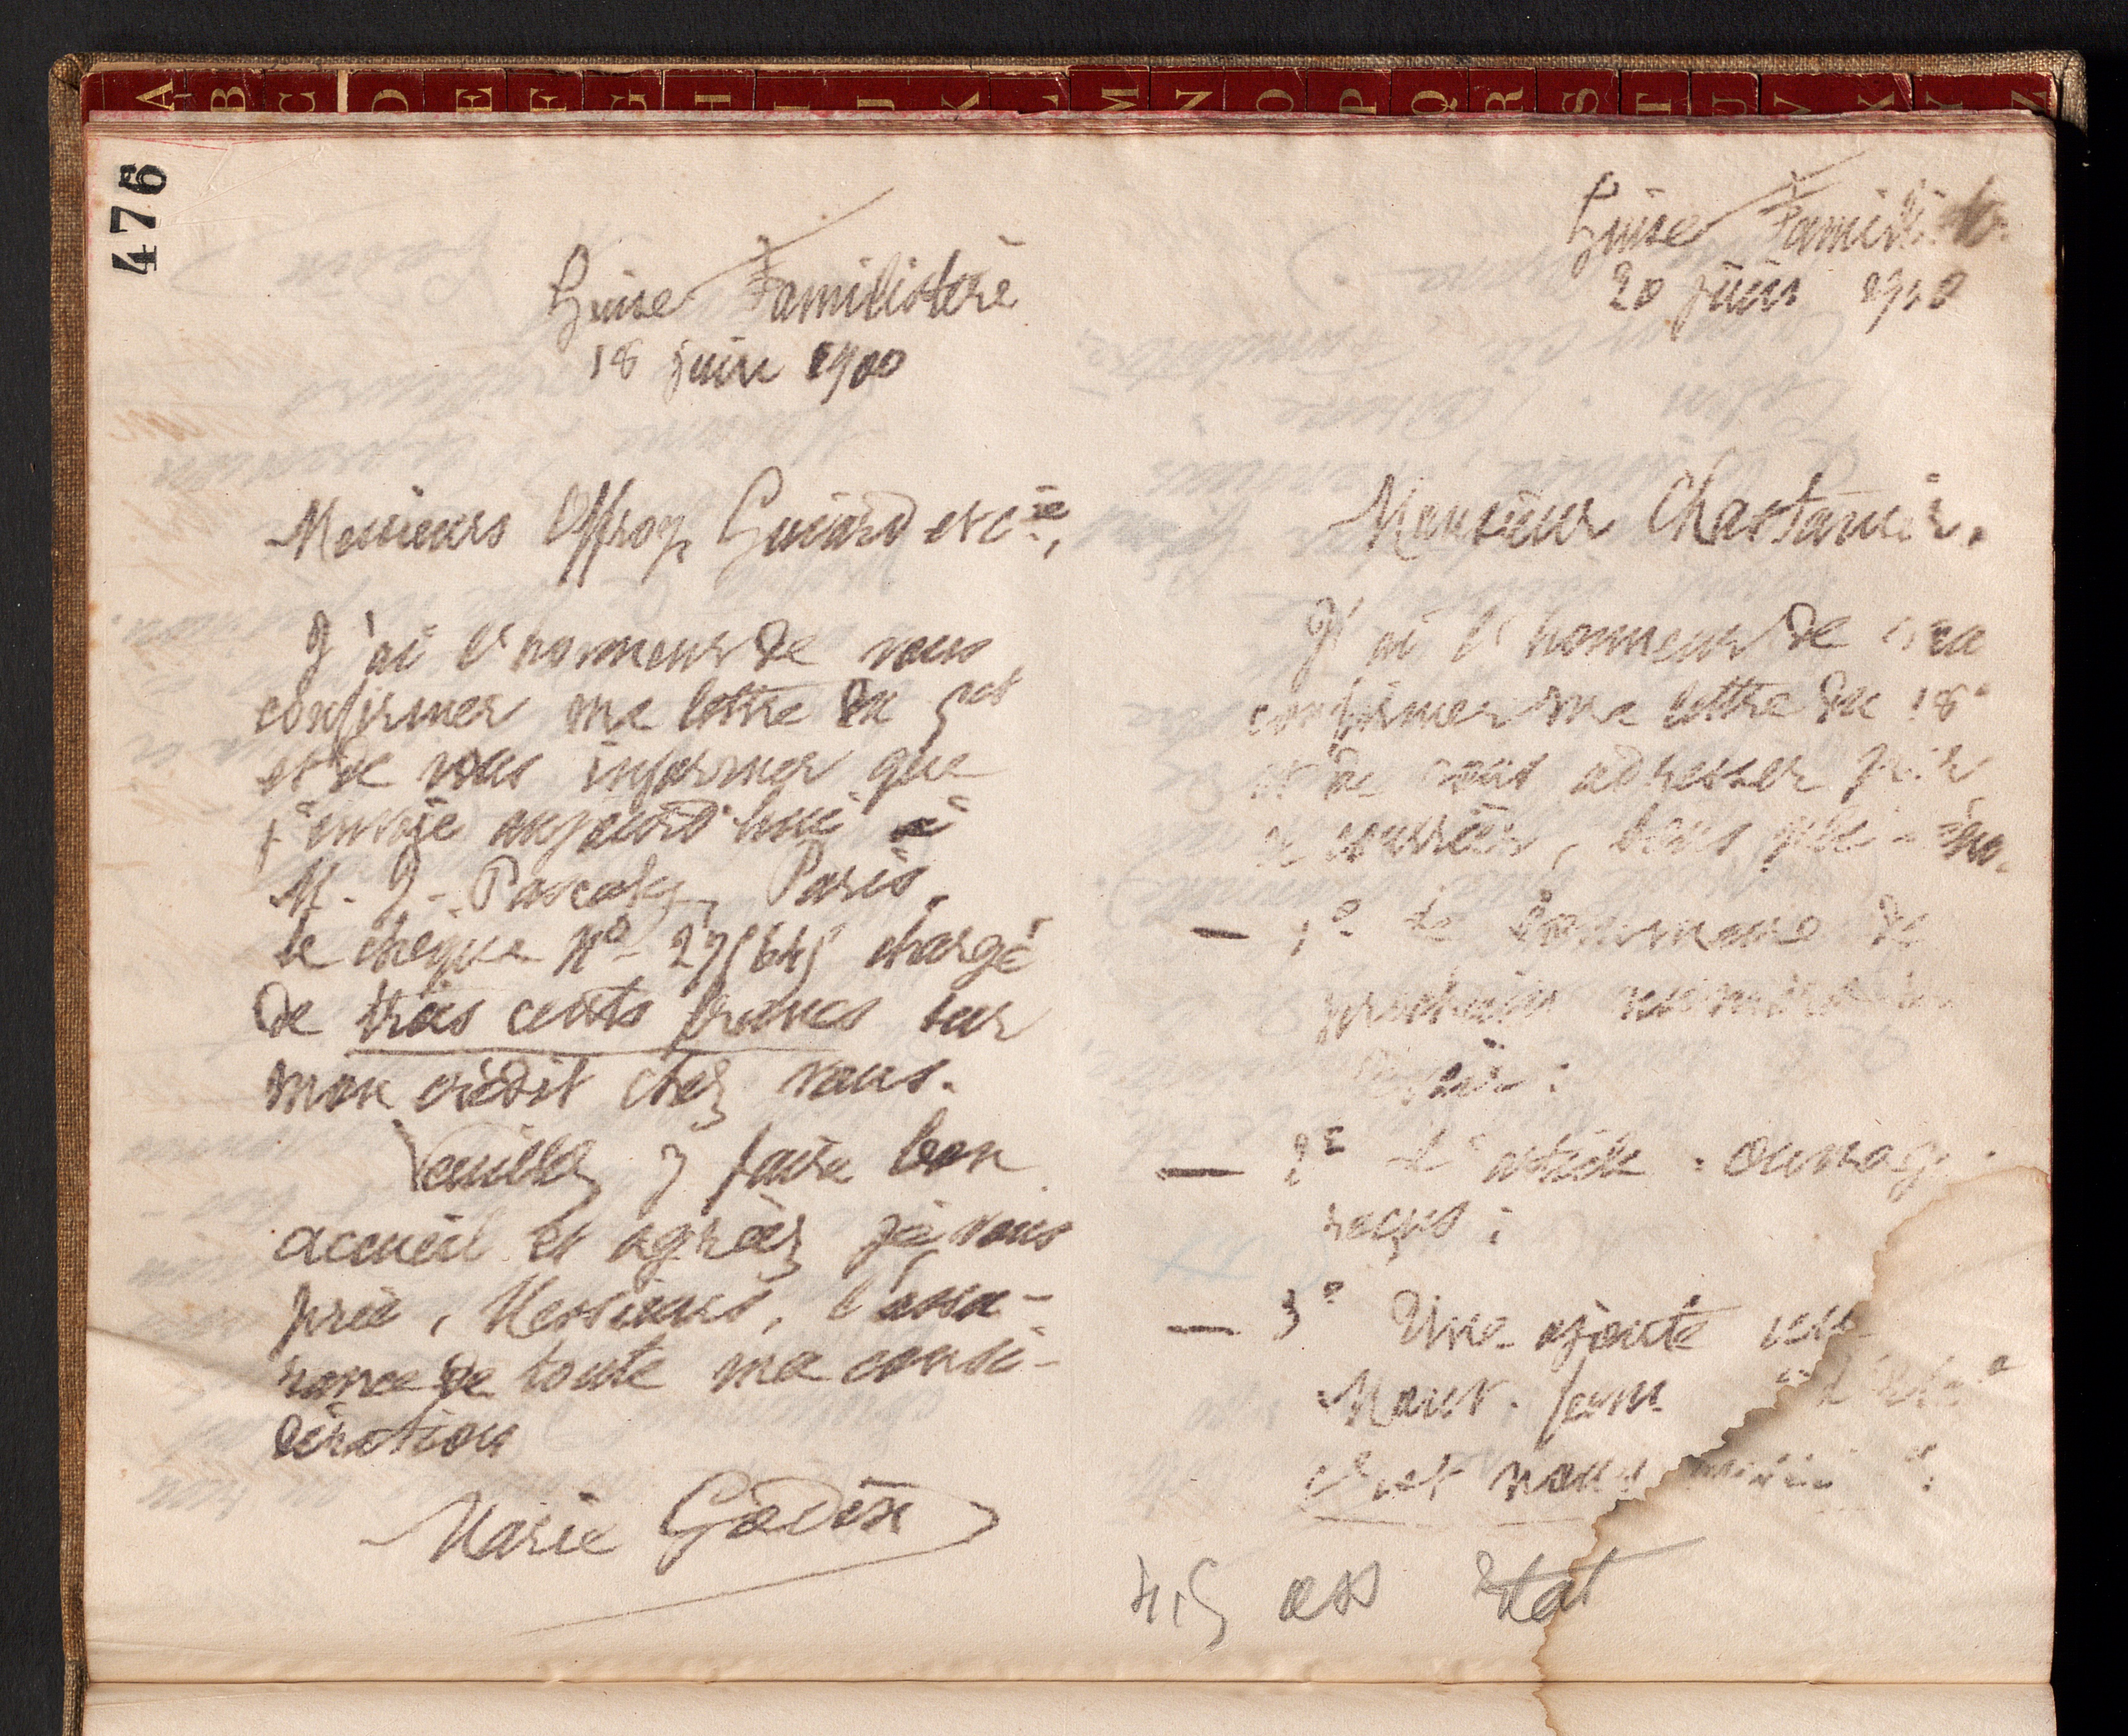 A B C D E F G H I J K L M N O P Q R S T U V X Y Z
476
Guise Familistère
18 juin 1900
Messieurs Offroy, Guiard et Cie,
J'ai l'honneur de vous
confirmer ma lettre du 5 ct
et de vous informer que
j'envoie aujourd'hui à
M. J. Pascaly, Paris,
le chèque No 275645 chargé
de trois cents francs sur
mon crédit chez vous.
Veuillez y faire bon
accueil et agréer, je vous
prie, Messieurs, l'assu-
rance de toute ma consi-
dération
Marie Godin
Guise Familistère
20 juin 1900
Monsieur Chastanier.
J'ai l'honneur de
confirmer ma lettre du 18
et de vous adresser par
ce courrier, sous pli
— 1o Le Sommaire de
prochain numéro
— 2o L'article ouvrag
reçus ;
— 3o Une ajoute
Mouv. fém.
nous
415 ass Etat